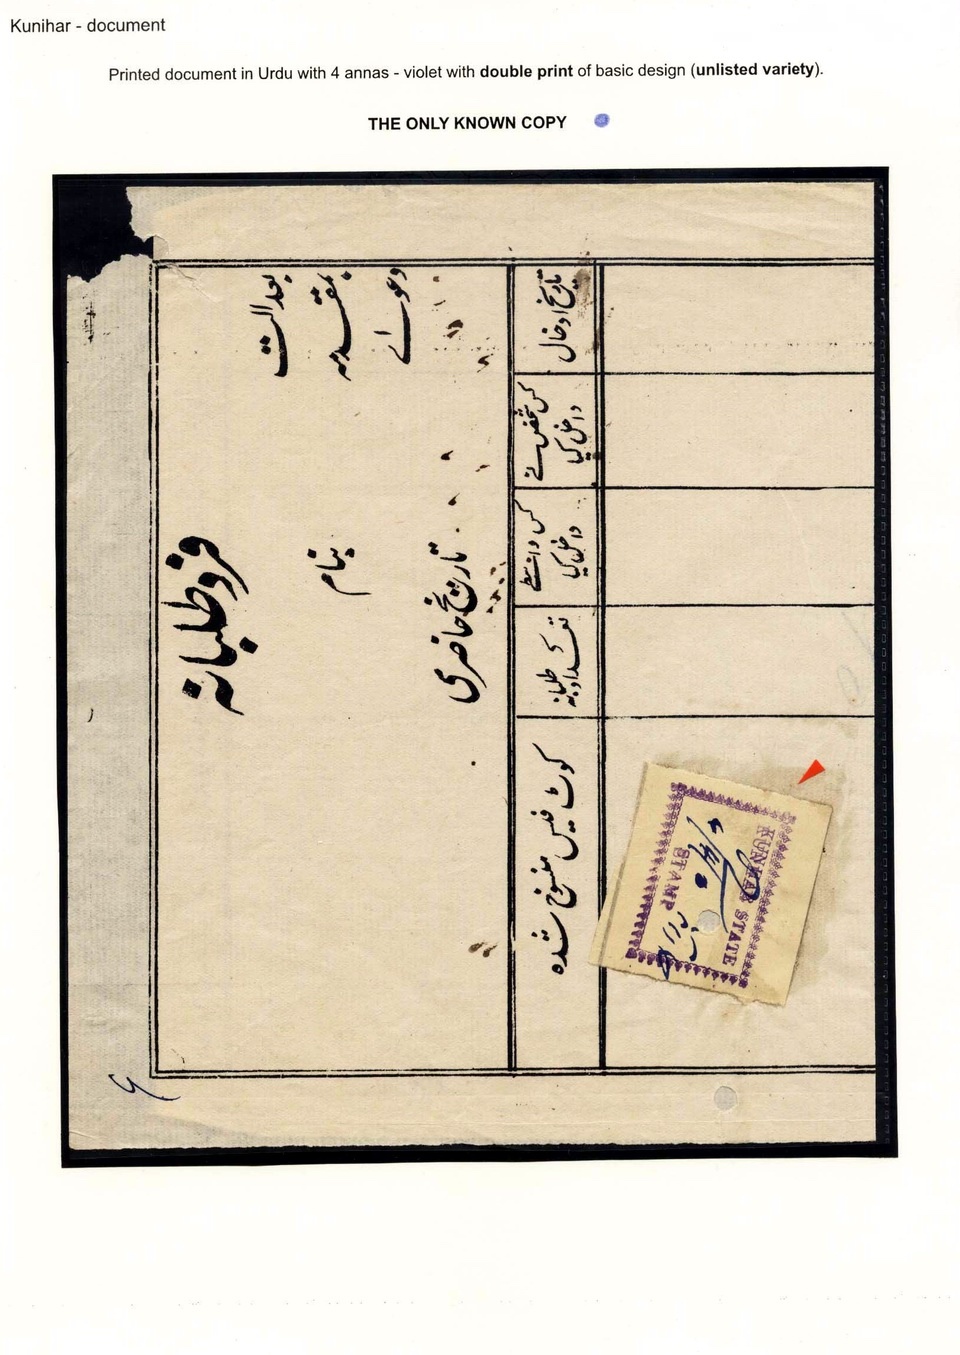 Kunihar - document
Printed document in Urdu with 4 annas - violet with double print of basic design (unlisted variety).
THE ONLY KNOWN COPY
فرد طلبانہ
بعدالت
بمقدمہ
بنام
دعوے
تاریخ حاضری
تاریخ ادخال
کس شخص نے
داخل کیا
کس واسطے
داخل کیا
تعداد
طلبانہ
کورٹ فیس منسوخ شدہ
KUNIHAR STATE
STAMP